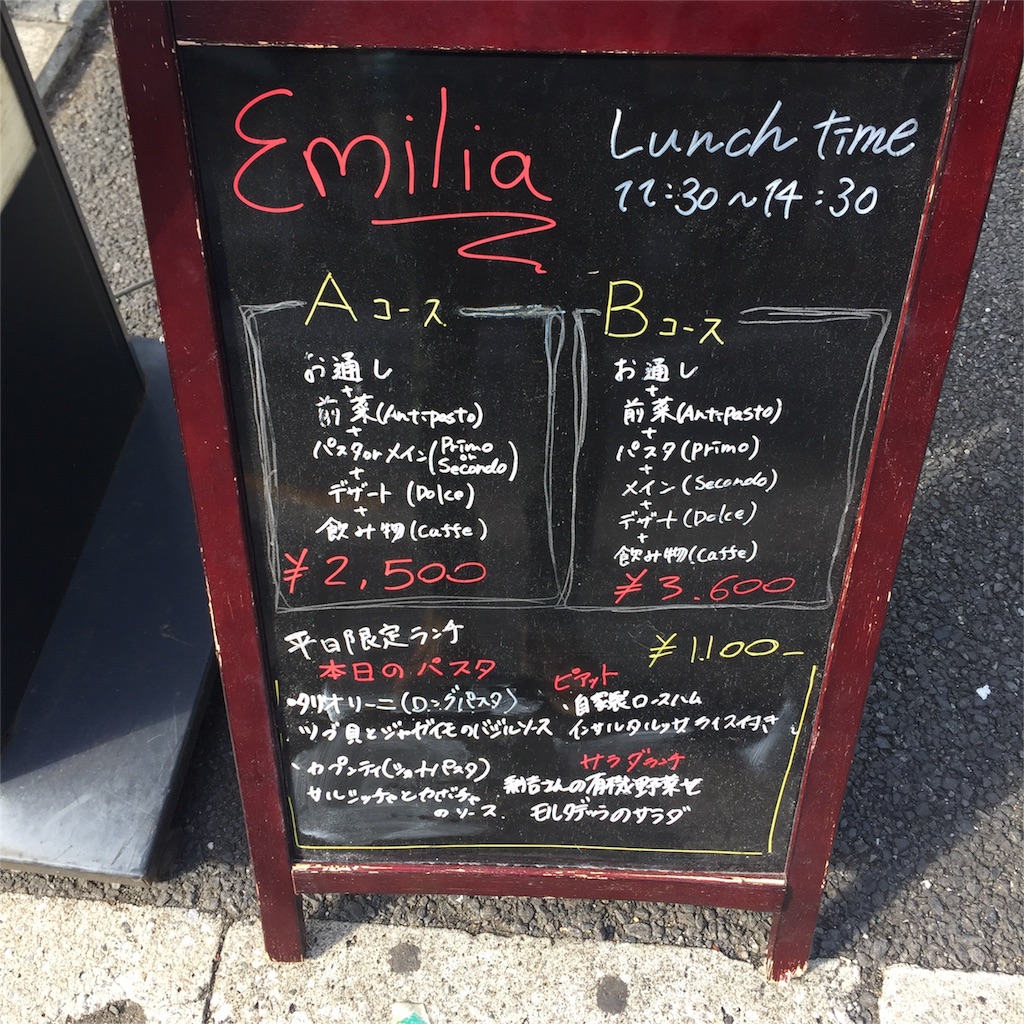 Emilia
Lunch time
11:30～14:30
Aコース
お通し
+
前菜(Antipasto)
+
パスタorメイン(Primo or Secondo)
+
デザート(Dolce)
+
飲み物(Caffe)
¥2,500
Bコース
お通し
+
前菜(Antipasto)
+
パスタ(Primo)
+
メイン(Secondo)
+
デザート(Dolce)
+
飲み物(Caffe)
¥3.600
平日限定ランチ
¥1.100-
本日のパスタ
・タリオリーニ(ロングパスタ)
ツブ貝とジャガイモのバジルソース
・カプンティ(ショートパスタ)
サルシッチャとカボチャ
のソース.
ピアット
・自家製ロースハム
インサルタルッサ ライス付き
サラダランチ
さんの有機野菜と
モルタデッラのサラダ